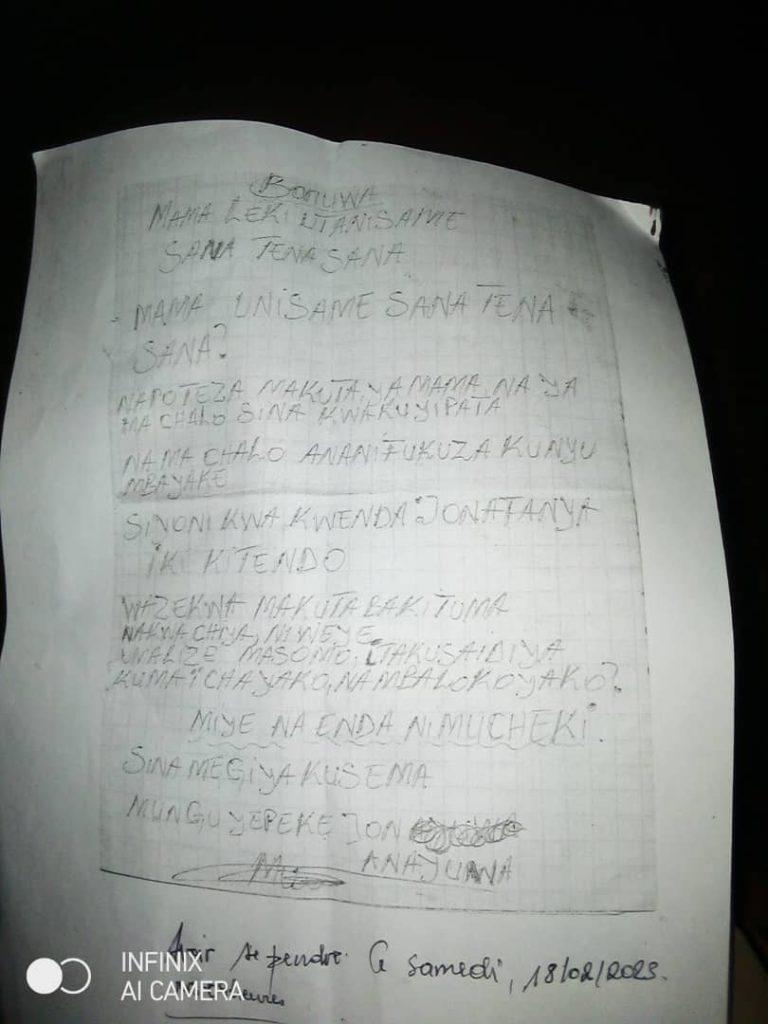 BONUWA
MAMA LEKI UTANISAME
SANA TENA SANA
- MAMA UNISAME SANA TENA
SANA?
NAPOTEZA MAKUTA, YA MAMA, NA YA
MA CHALO SINA KWAKUYIPATA
NA MA CHALO ANANIFUKUZA KUNYU
MBAYAKE
SINONI KWA KWENDA JONATANYA
IKI KITENDO
WAZEKWA MAKUTA BAKITUMA
NAKWACHIYA, NI WEYE
UNALIZE MASOMO, ITAKUSAIDIYA
KUMAICHAYAKO, NA MBALOKOYAKO?
MIYE NA ENDA NIMUCHEKI.
SINA MEGIYAKUSEMA
MUNGU YEPEKE JON
ANAJUWA
se pendre. Ce samedi, 18/02/2023.
INFINIX
AI CAMERA